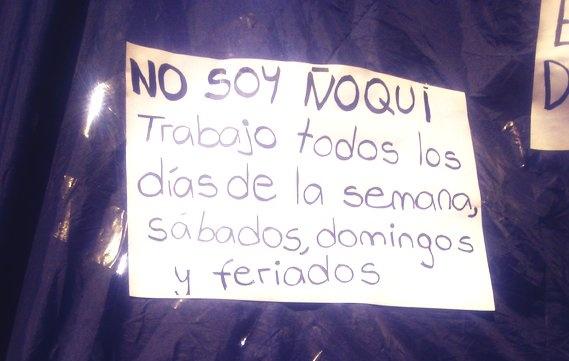 NO SOY ÑOQUI
Trabajo todos los
días de la semana,
sábados, domingos
y feriados